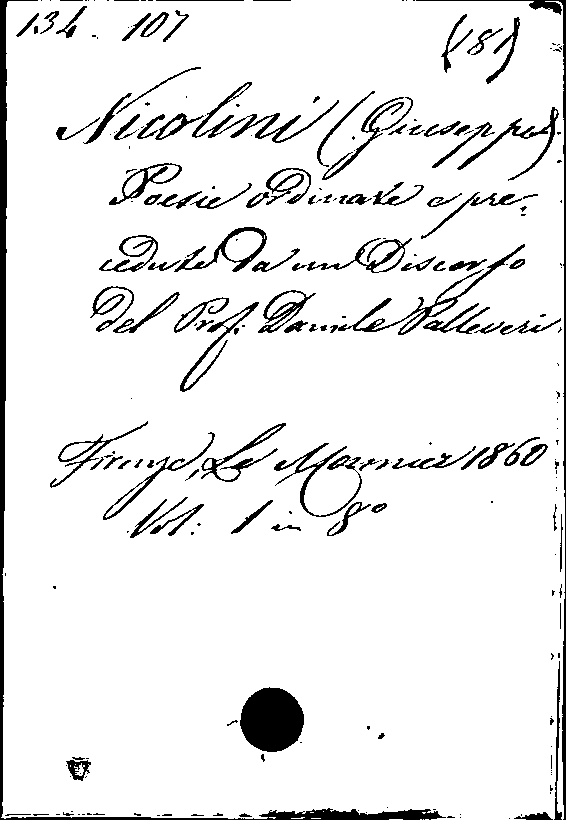 134. 107
(181)
Nicolini (Giuseppe)
Poesie ordinate e pre-
cedute da un Discorso
del Prof. Daniele Palleveri
Firenze, Le Monnier 1860
Vol: 1 in 8º